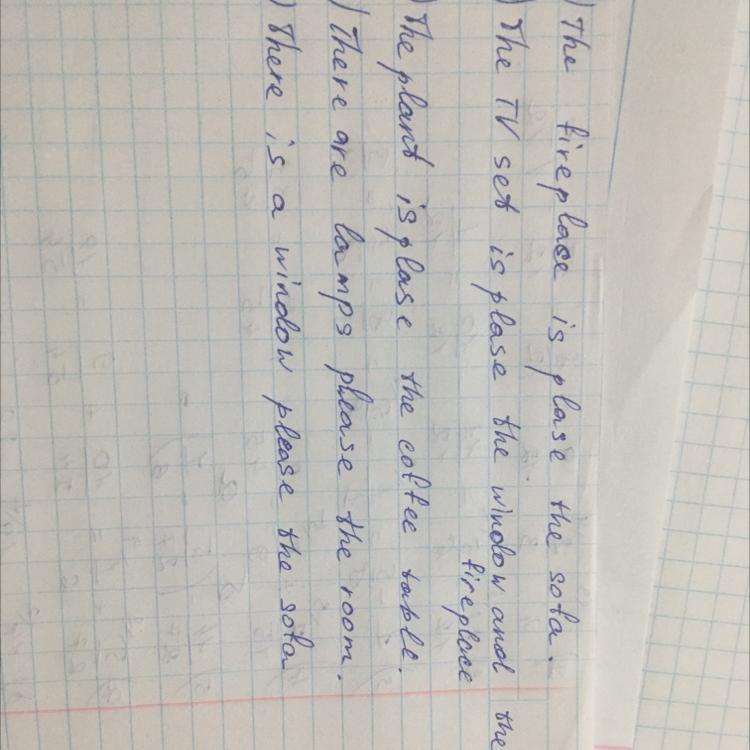 ) The fireplace is plase the sofa.
) The TV set is plase the window and the
fireplace
) The plant is plase the coffee table.
) There are lamps please the room.
) There is a window please the sofa